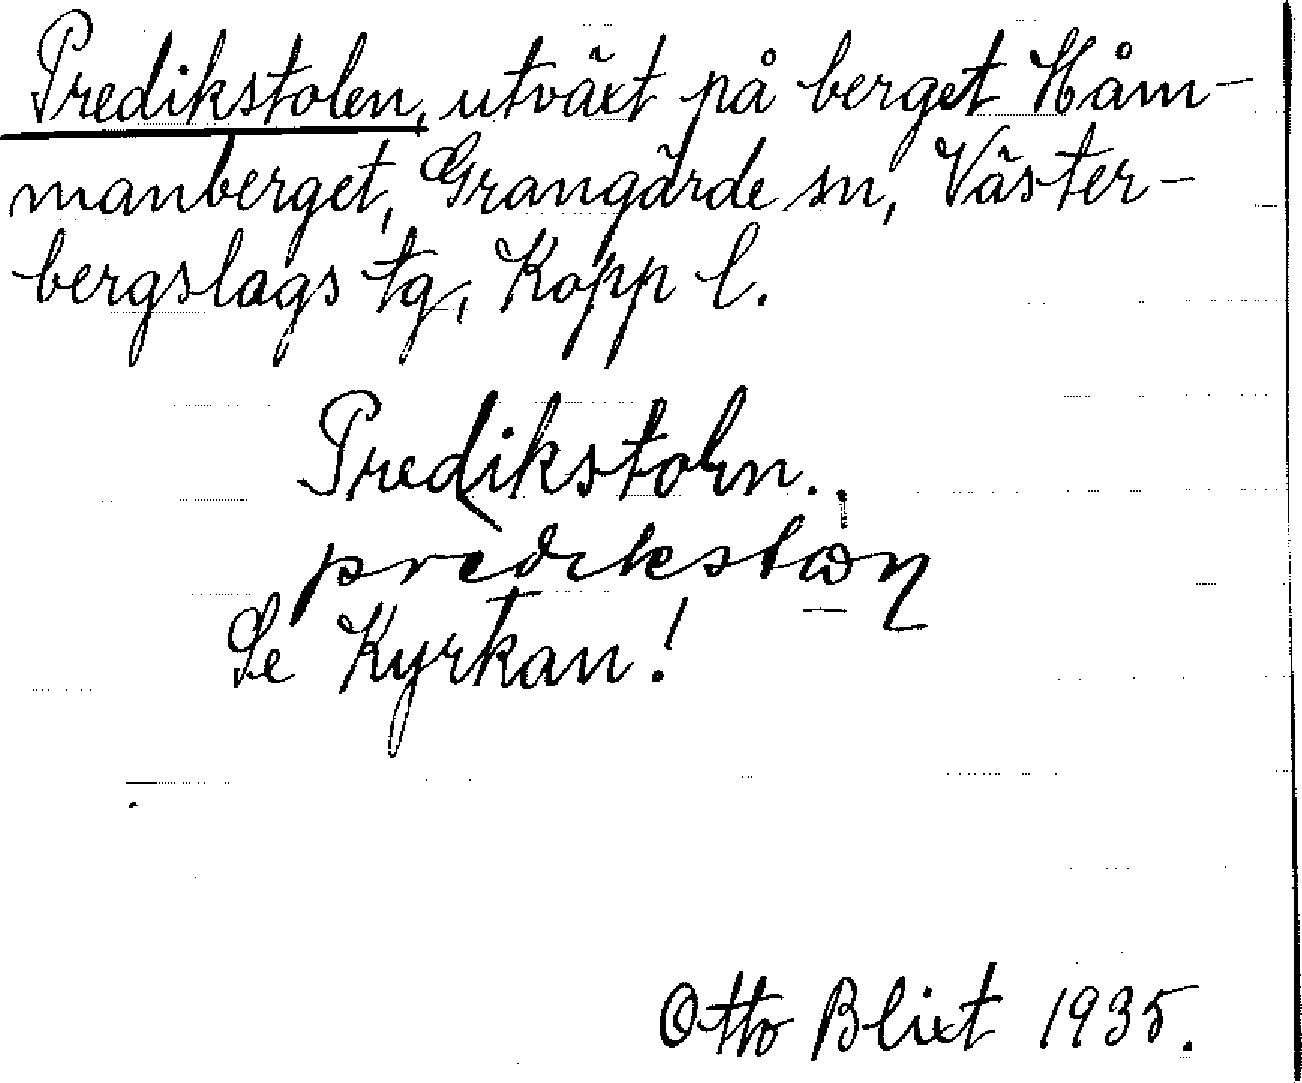 Predikstolen, utväxt på berget Håm-
manberget, Grangärde sn, Väster-
bergslags tg, Kopp l.
Predikstoln.
Se Kyrkan!
Otto Blixt 1935.